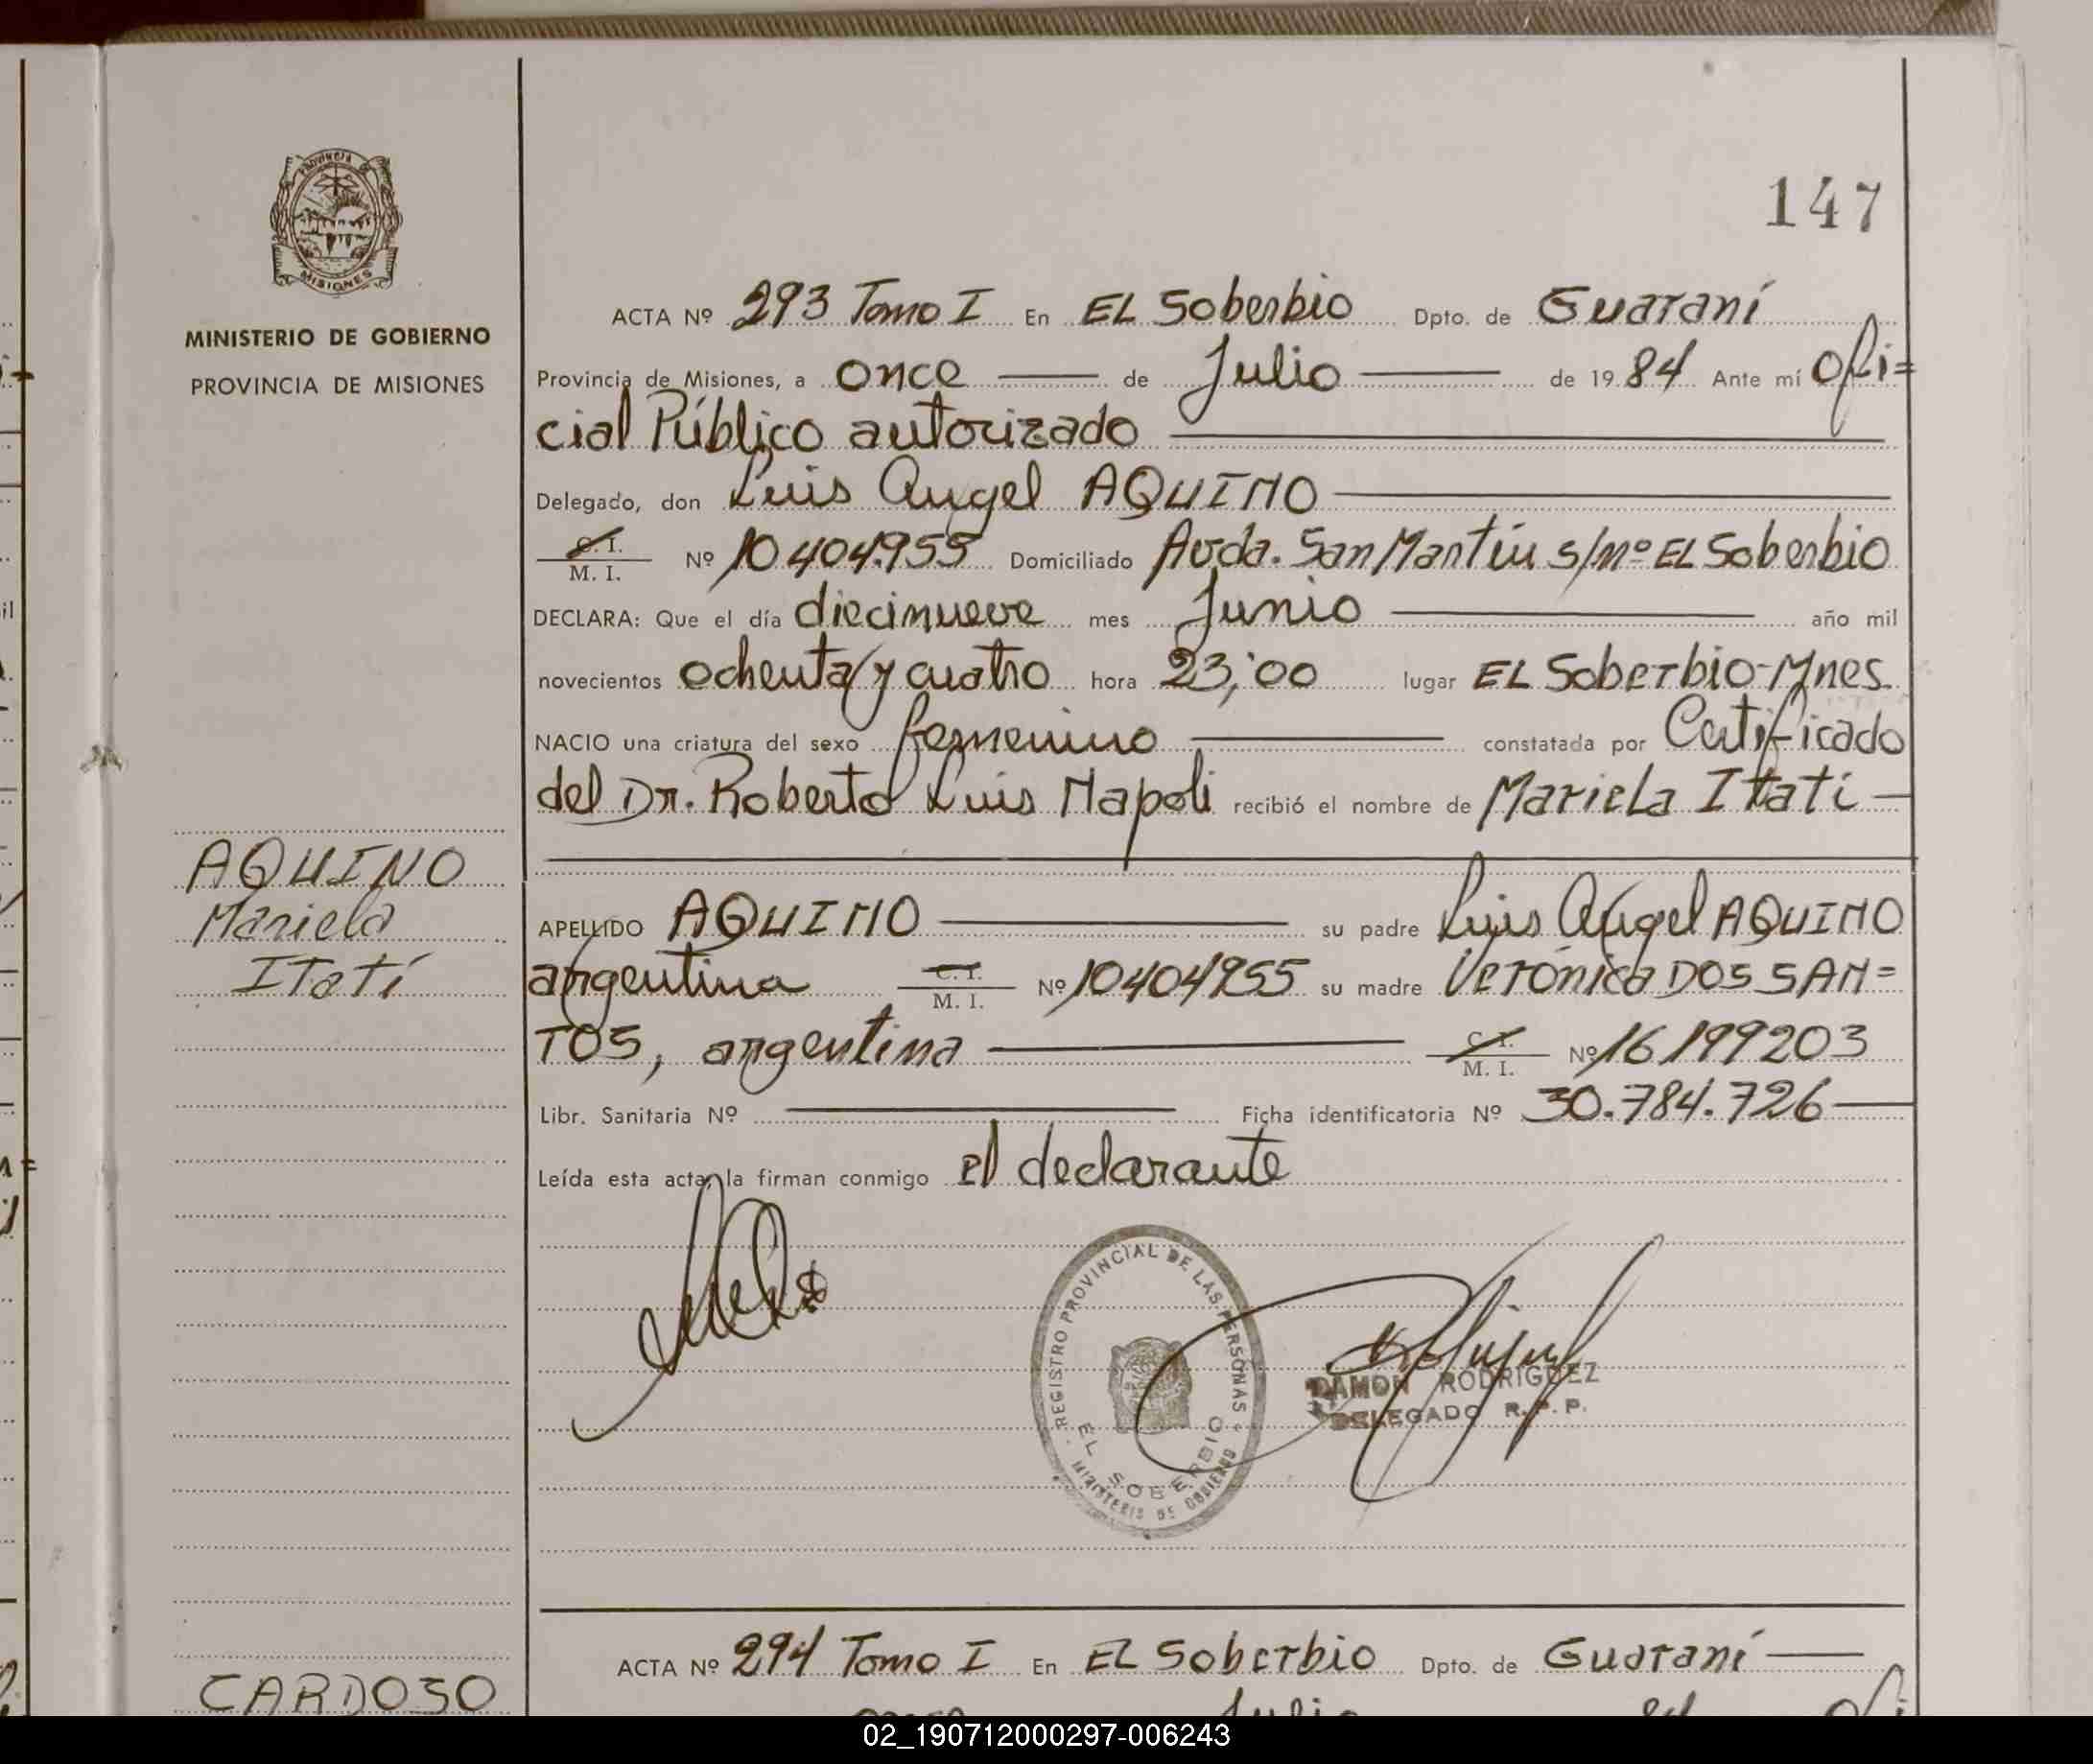 PROVINCIA DE
MISIONES
MINISTERIO DE GOBIERNO
PROVINCIA DE MISIONES
147
ACTA Nº 293 Tomo I En EL Soberbio Dpto. de Guaraní
Provincia de Misiones, a once de Julio de 1984 Ante mí Ofi=
cial Público autorizado
Delegado, don Luis Angel AQUINO
C. I. M. I. Nº 10404.955 Domiciliado Avda. San Martín s/nº EL Soberbio
DECLARA: Que el día diecinueve mes Junio año mil
novecientos ochenta y cuatro hora 23,00 lugar EL Soberbio-Mnes.
NACIO una criatura del sexo femenino constatada por Certificado
del Dr. Roberto Luis Napoli recibió el nombre de Mariela Itatí
AQUINO
Mariela
Itatí
APELLIDO AQUINO su padre Luis Angel AQUINO
argentina C. I. M. I. Nº 10404955 su madre Verónica DOS SAN=
TOS, argentina C. I. M. I. Nº 16199203
Libr. Sanitaria Nº Ficha identificatoria Nº 30.784.726
Leída esta acta, la firman conmigo el declarante
REGISTRO PROVINCIAL DE LAS PERSONAS
EL SOBERBIO
MINISTERIO DE GOBIERNO
RAMON RODRIGUEZ
DELEGADO R. P. P.
ACTA Nº 294 Tomo I En EL Soberbio Dpto. de Guaraní
CARDOSO
Julio 84 Ofi
02_190712000297-006243